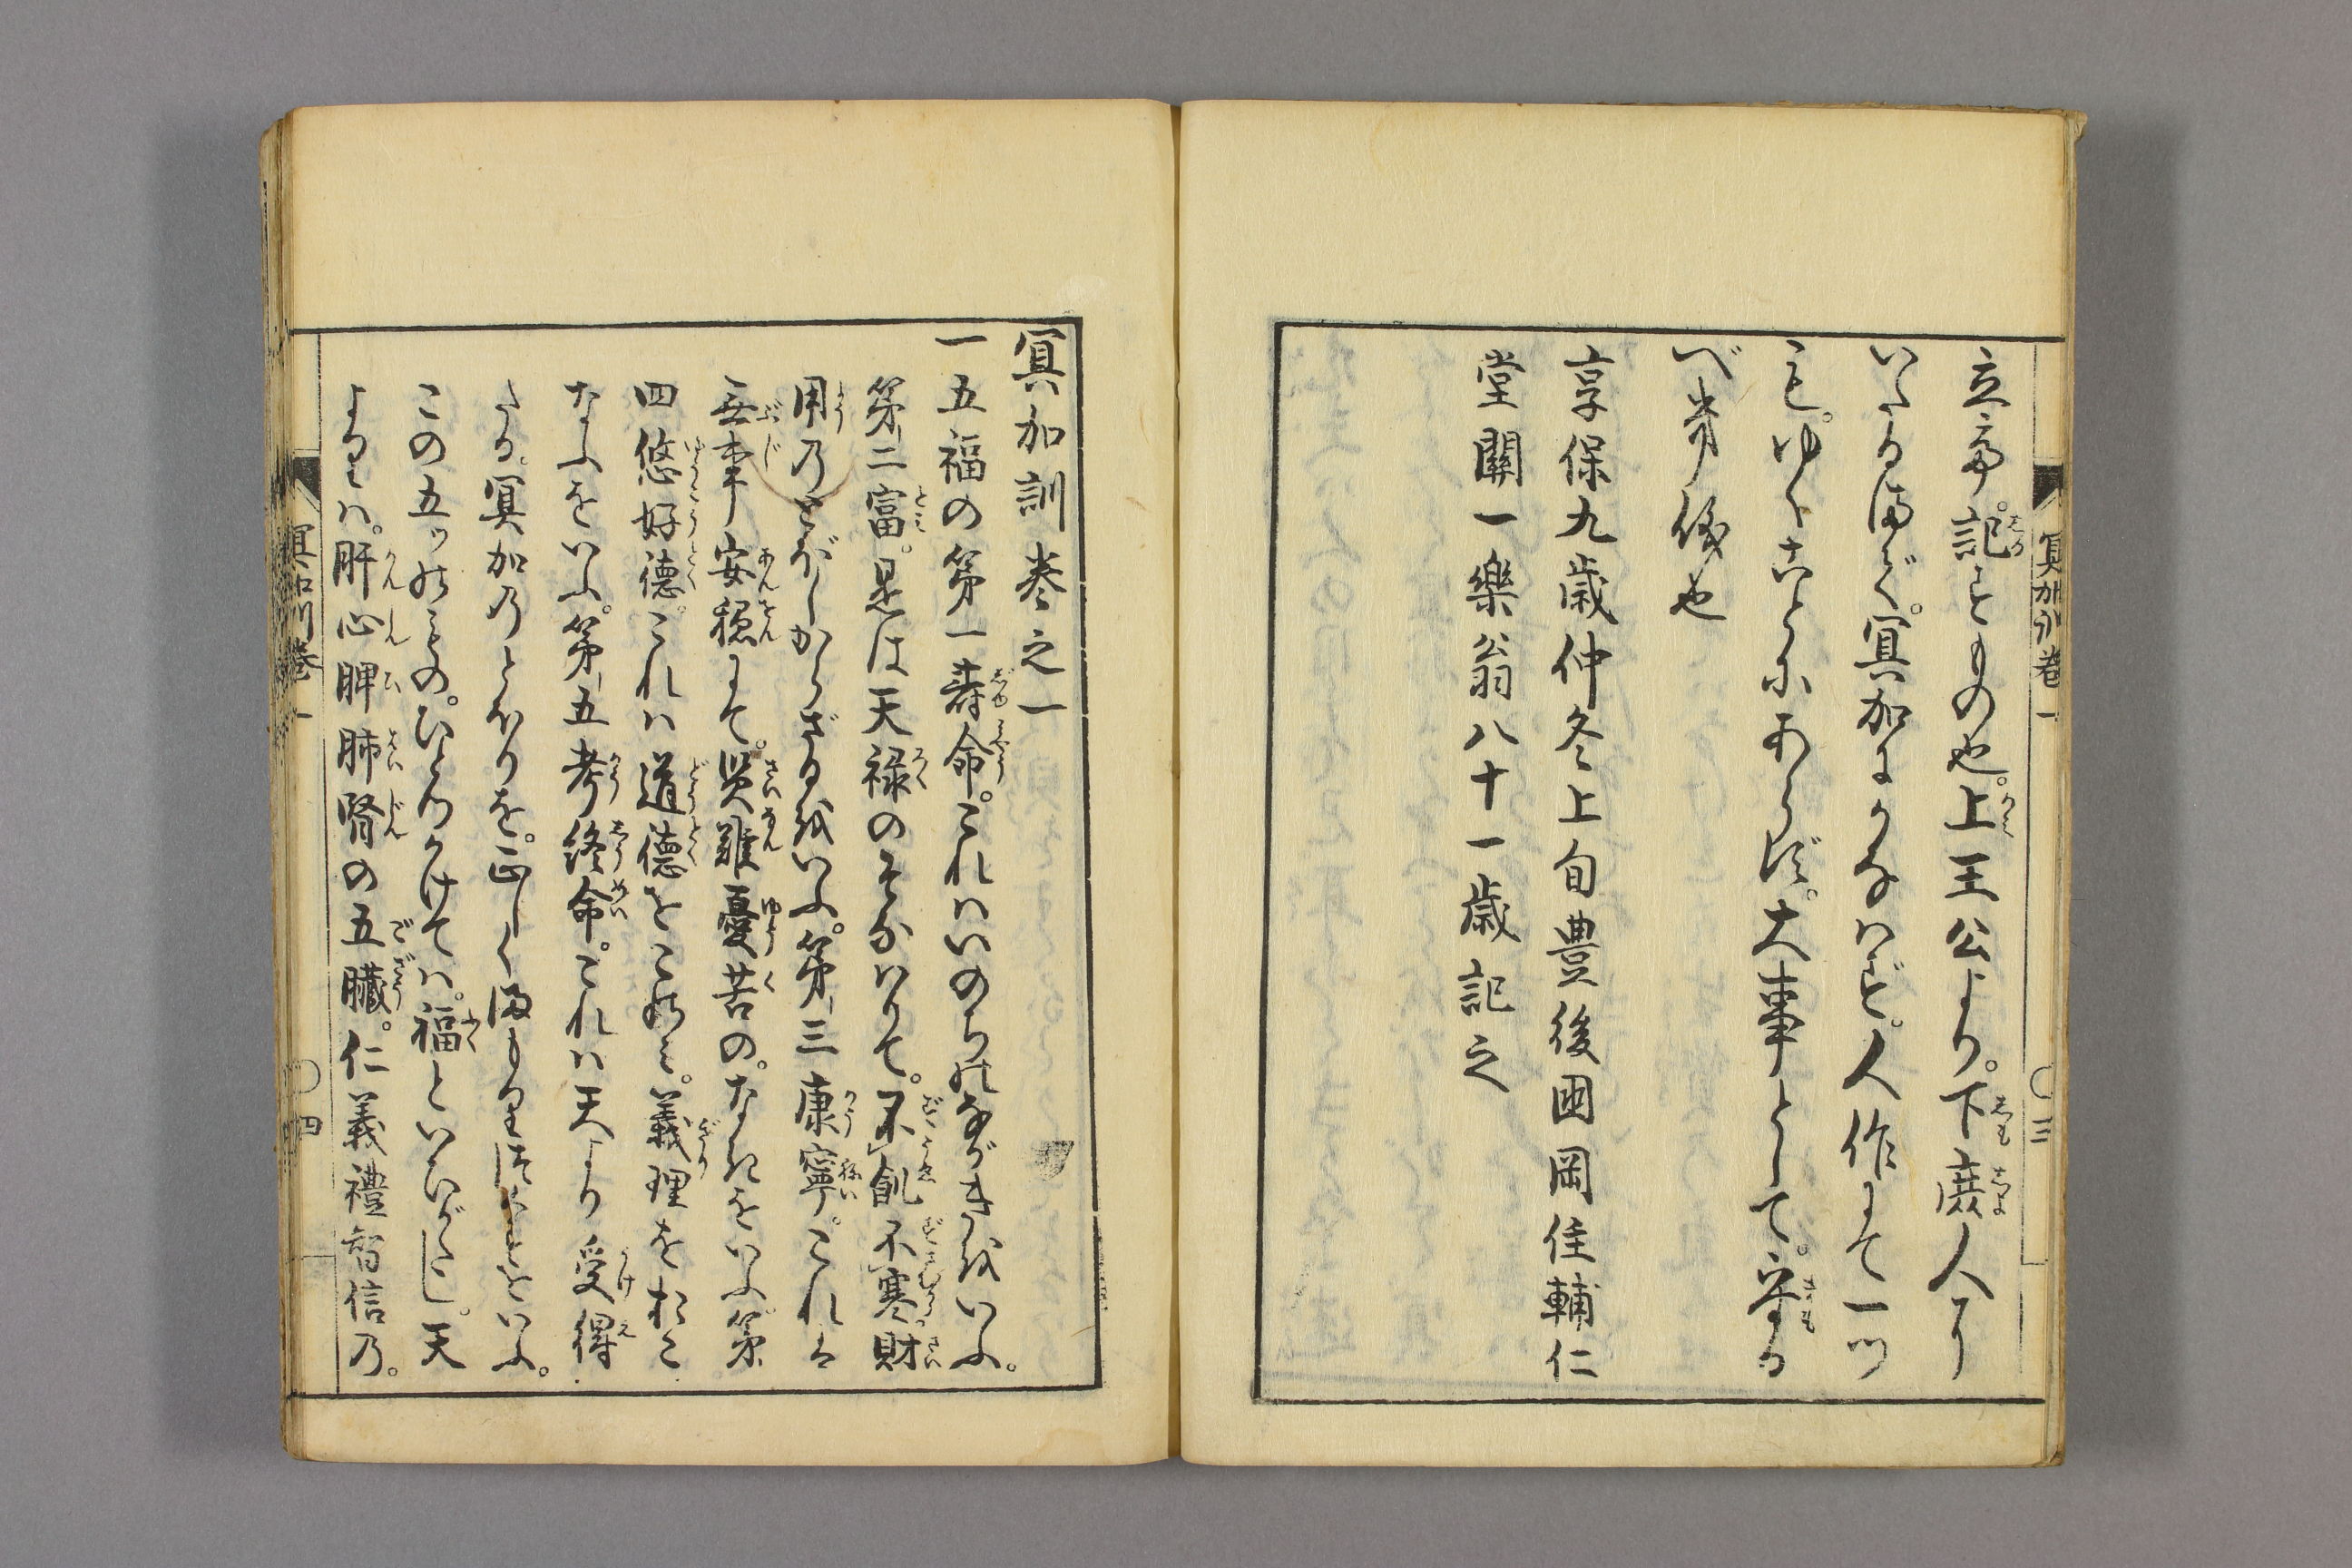 立才。記すもの也。上王公より。下庶人に
いたるまで。冥加にかなはず。人作にて一ツ
も。ゆくことにあらず。大事として。守る
べき儀也
享保九歳仲冬上旬豊後国岡住輔仁
堂關一樂翁八十一歳記之
冥加訓巻之一
一五福の第一壽命。これハいのちのながきをいふ。
第二富。是は天禄のそなハりて。不飢不寒財
用のとぼしからざるをいふ。第三康寧。これは
無事安穏にて。災難憂苦の。なきをいふ。第
四悠好德。これハ道德をこのみ。義理をおこ
なふをいふ。第五考終命。これハ天より受得
たる。冥加のとほりを。正しくまもりつくすをいふ。
この五ッのもの。ひとつかけてハ。福といひがたし。天
よりハ。肝心脾肺腎の五臓。仁義禮智信乃。
冥加訓巻一
〇三
冥加訓巻一
〇四